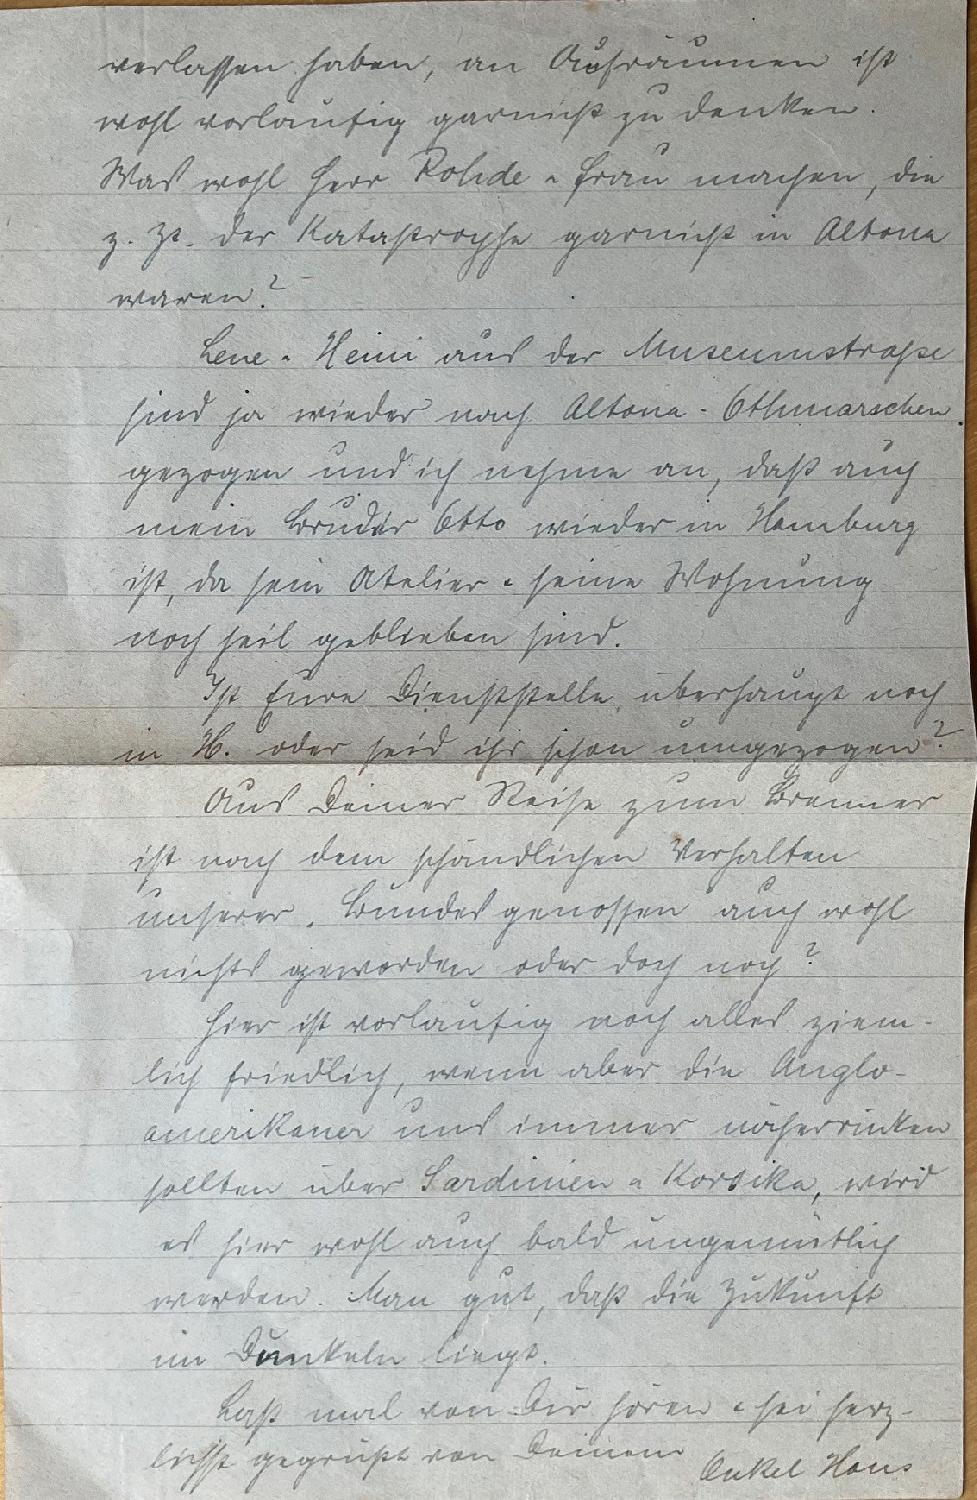 verlassen haben, an Aufräumen ist
wohl vorläufig garnicht zu denken.
Was wohl Herr Rohde u. Frau machen, die
z. Zt. der Katastrophe garnicht in Altona
waren?
Lene u. Heini aus der Museumstraße
sind ja wieder nach Altona-Othmarschen
gezogen und ich nehme an, daß auch
mein Bruder Otto wieder in Hamburg
ist, da sein Atelier u. seine Wohnung
noch heil geblieben sind.
Ist Eure Dienststelle überhaupt noch
in H. oder seid ihr schon umgezogen?
Aus Deiner Reise zum Brenner
ist nach dem schändlichen Verhalten
unserer Bundesgenossen auch wohl
nichts geworden oder doch noch?
Hier ist vorläufig noch alles ziem-
lich friedlich, wenn aber die Anglo-
amerikaner uns immer näherrücken
sollten über Sardinien u. Korsika, wird
es hier wohl auch bald ungemütlich
werden. Man gut, daß die Zukunft
im Dunkeln liegt.
Laß mal von Dir hören u. sei herz-
lichst gegrüßt von Deinem Onkel Hans